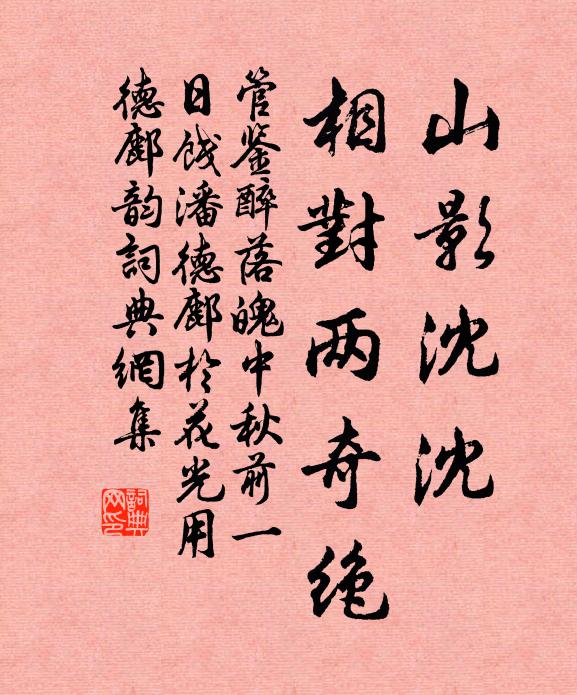 山影沈沈
相對两奇绝
管鉴醉落魄中秋前一
日饯潘德鄜於花光用
德鄜韵詞典網集
詞典网印